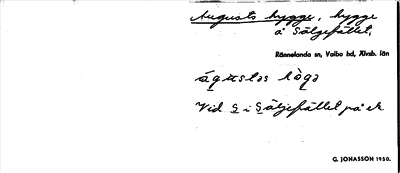 Augusts hygge, hygge
å Säljefället.
Rännelanda sn, Valbo hd, Älvsb. län
águstas
Vid S i Säljefället på ek
G. JONASSON 1950.